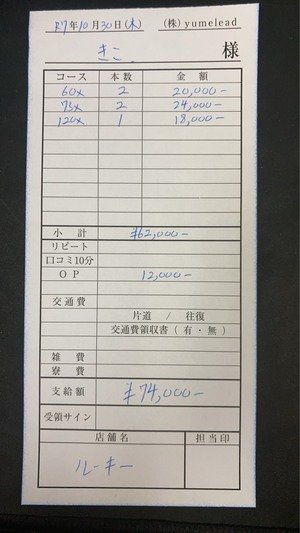 R7年10月30日(木) (株)yumelead
きこ 様
コース 本数 金額
60x 2 20,000-
75x 2 24,000-
120x 1 18,000-
小計 ¥62,000-
リピート
口コミ10分
OP 12,000-
交通費
片道 / 往復
交通費領収書(有・無)
雑費
寮費
支給額 ¥74,000-
受領サイン
店舗名 担当印
ルーキー